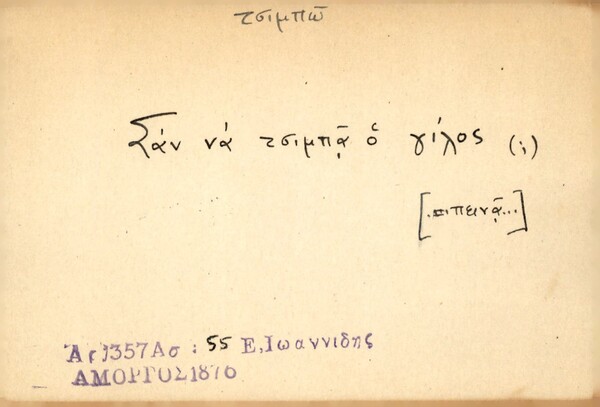 τσιμπῶ
Σάν νά τσιμπᾷ ὁ γίλος (;)
[...πεινᾷ...]
Ἀρ 1357 Ασ : 55 Ε, Ιωαννιδης
ΑΜΟΡΓΟΣ 1876